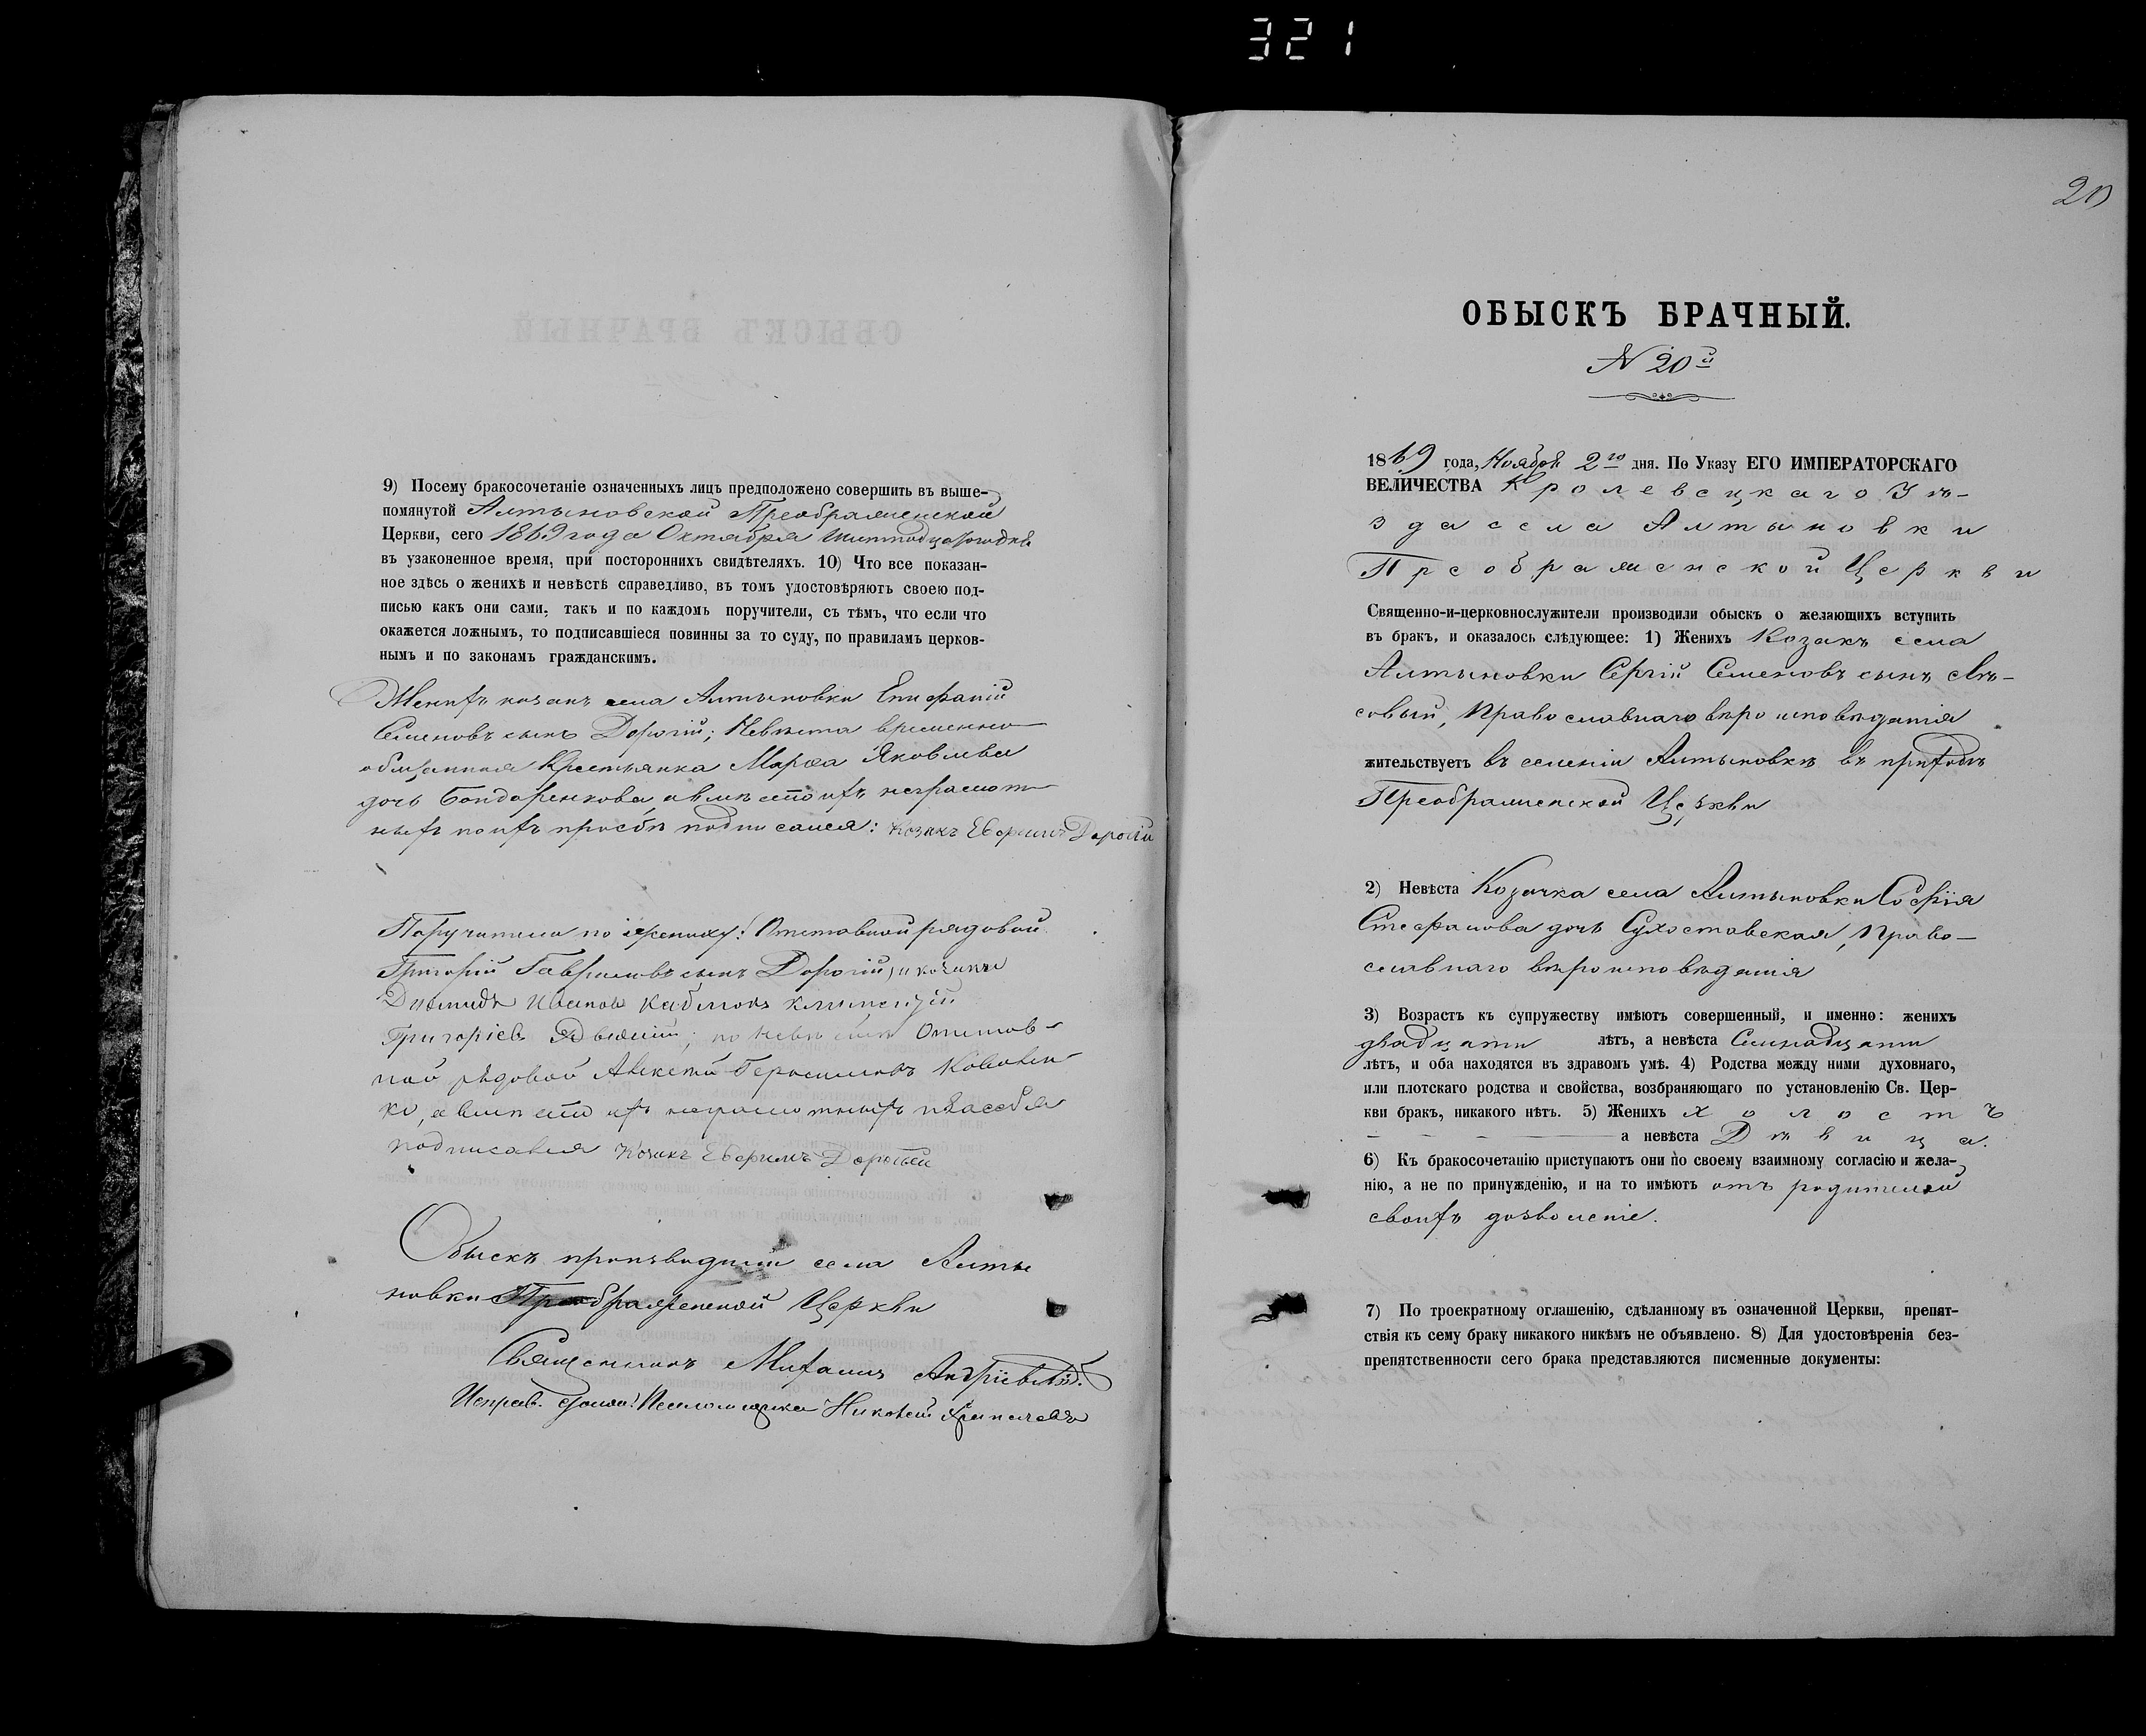 321
9) Посему бракосочетаніе означенныхъ лицъ предположено совершить въ выше-
помянутой Алтыновской Преображенской
Церкви, сего 1869 года Октября
въ узаконенное время, при постороннихъ свидѣтеляхъ. 10) Что все показан-
ное здѣсь о женихѣ и невѣстѣ справедливо, въ томъ удостовѣряютъ своею под-
писью какъ они сами, такъ и по каждомъ поручители, съ тѣмъ, что если что
окажется ложнымъ, то подписавшіеся повинны за то суду, по правиламъ церков-
нымъ и по законамъ гражданскимъ.
Женихъ козакъ села Алтыновки Епифаній
Семеновъ сынъ Дорогій; Невѣста временно
обязанная Крестьянка Марѳа Яковлева
дочь Бондаренкова а вмѣсто ихъ неграмот
ныхъ по ихъ прозбѣ подписался: Козакъ Дорогій
Поручители по женихѣ: Отставной рядовой
Григорій Гавриловъ сынъ Дорогій, и козаки
Діомидъ Ивановъ
Григоріевъ по невѣстѣ Отстав-
ной рядовой Алексѣй Герасимовъ
ко, а вмѣсто ихъ неграмотныхъ и за себя
подписался Козакъ Дорогій
Обыскъ производили села Алты
новки Преображенской Церкви
Священникъ Михаилъ Андріевскій
Исправ. долж. Псаломщика Николай
20
ОБЫСКЪ БРАЧНЫЙ.
N 20й
1869 года, Ноября 2го дня. По Указу ЕГО ИМПЕРАТОРСКАГО
ВЕЛИЧЕСТВА Кролевецкаго Уѣ-
зда села Алтыновки
Преображенской Церкви
Священно-и-церковнослужители производили обыскъ о желающихъ вступить
въ бракъ, и оказалось слѣдующее: 1) Женихъ Козакъ села
Алтыновки Сергій Семеновъ сынъ Лѣ-
совый, Православнаго вѣроисповѣданія
жительствуетъ въ селеніи Алтыновкѣ въ приходѣ
Преображенской Церкви
2) Невѣста Козачка села Алтыновки Софія
Стефанова дочь Сухоставская, Право-
славнаго вѣроисповѣданія
3) Возрастъ къ супружеству имѣютъ совершенный, и именно: женихъ
двадцати лѣтъ, а невѣста Семнадцати
лѣтъ, и оба находятся въ здравомъ умѣ. 4) Родства между ними духовнаго,
или плотскаго родства и свойства, возбраняющаго по установленію Св. Цер-
кви бракъ, никакого нѣтъ. 5) Женихъ холостъ
а невѣста Дѣвица.
6) Къ бракосочетанію приступаютъ они по своему взаимному согласію и жела-
нію, а не по принужденію, и на то имѣютъ отъ родителей
своихъ дозволеніе.
7) По троекратному оглашенію, сдѣланному въ означенной Церкви, препят-
ствія къ сему браку никакого никѣмъ не объявлено. 8) Для удостовѣренія без-
препятственности сего брака представляются писменные документы: